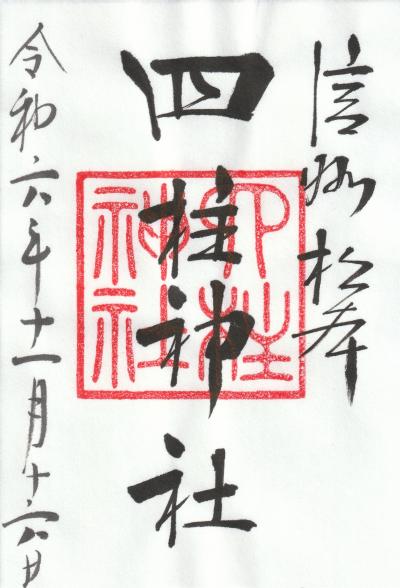 信州松本
四柱神社
令和六年十一月十六日
四柱
神社